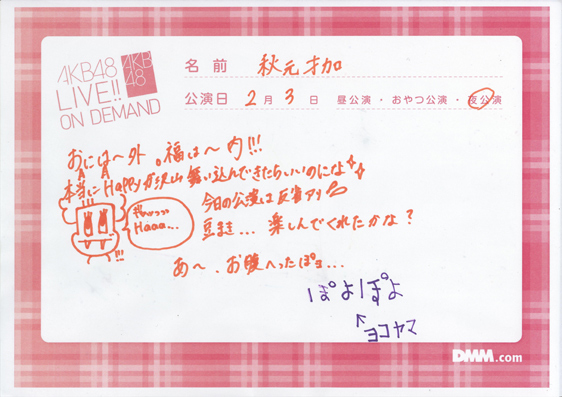 AKB48
LIVE!!
ON DEMAND
AKB
48
名前 秋元才加
公演日 2月3日 昼公演・おやつ公演・夜公演
おには〜外。福は〜内!!!
本当にHappyが沢山舞い込んできたらいいのになぁ
今日の公演は反省アリ
豆まき... 楽しんでくれたかな?
Haaa...
!!!
あ〜、お腹へったぽョ...
ぽよぽよ
↑ヨコヤマ
DMM.com